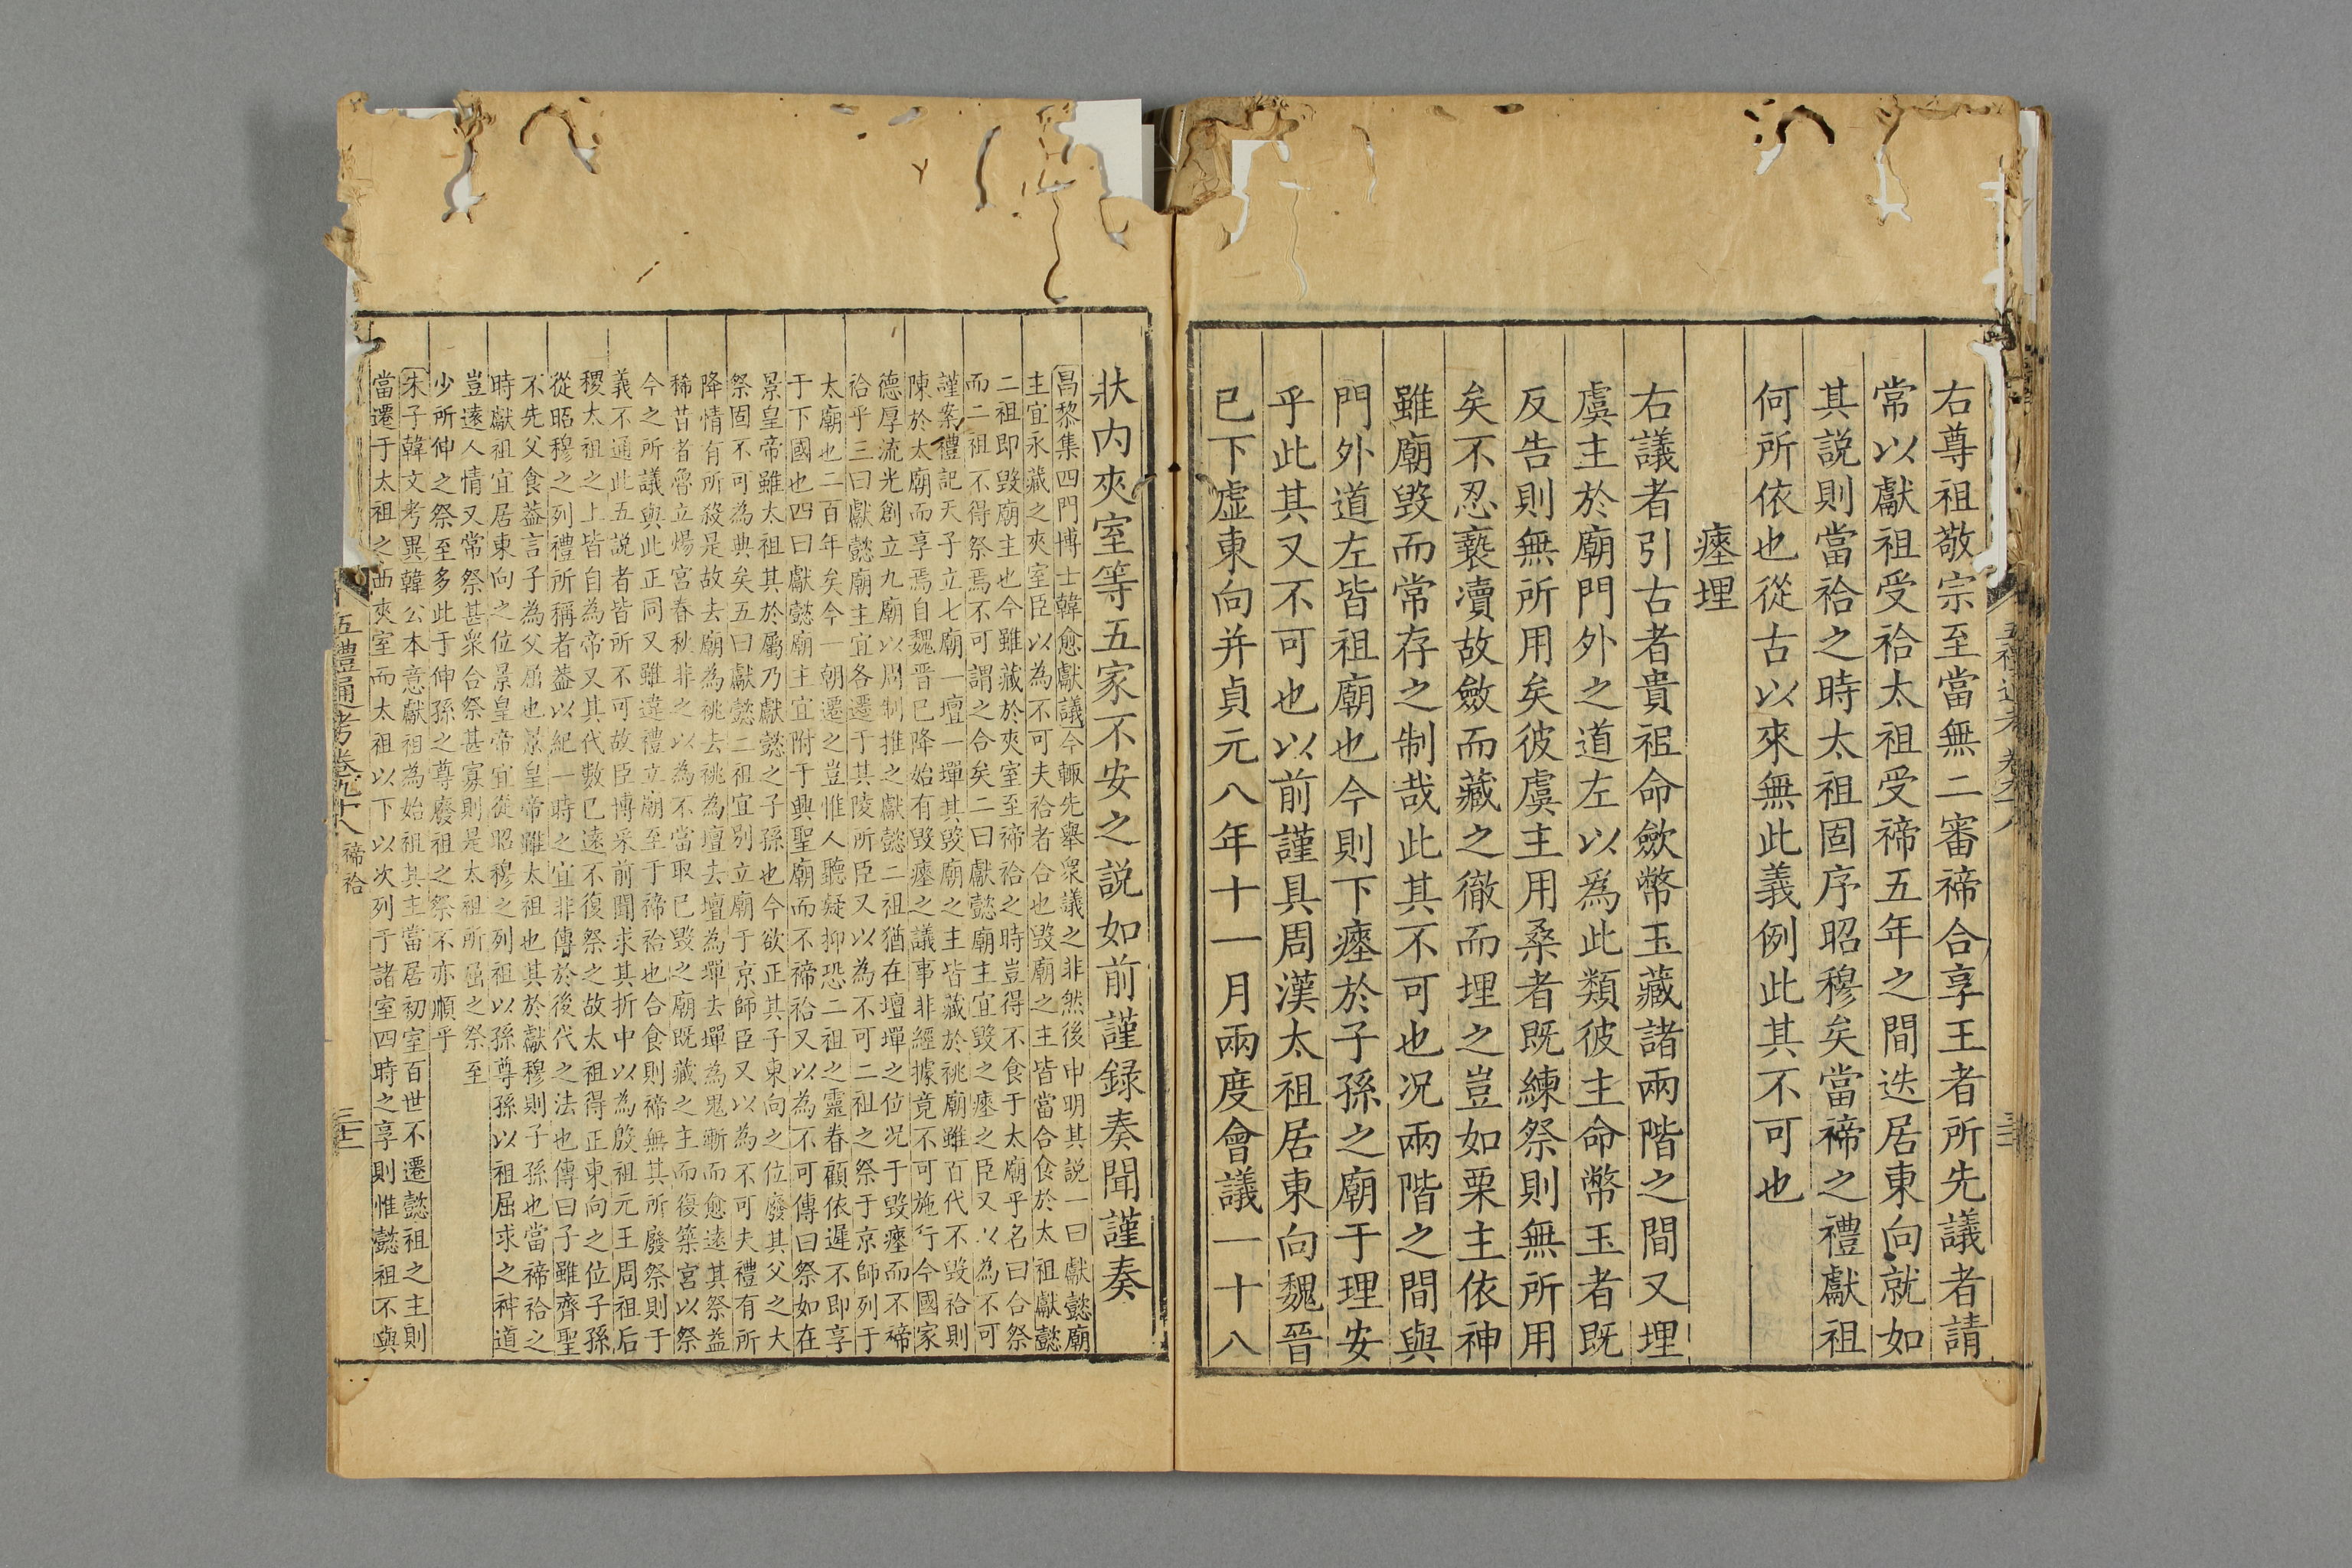 右尊祖敬宗至當無二審禘合享王者所先議者請
常以獻祖受祫太祖受禘五年之間迭居東向就如
其説則當祫之時太祖固序昭穆矣當禘之禮獻祖
何所依也從古以來無此義例此其不可也
瘞埋
右議者引古者貴祖命斂幣玉藏諸兩階之間又埋
虞主於廟門外之道左以爲此類彼主命幣玉者既
反告則無所用矣彼虞主用桑者既練祭則無所用
矣不忍褻瀆故斂而藏之徹而埋之豈如栗主依神
雖廟毀而常存之制哉此其不可也况兩階之間與
門外道左皆祖廟也今則下瘞於子孫之廟于理安
乎此其又不可也以前謹具周漢太祖居東向魏晉
已下虛東向并貞元八年十一月兩度會議一十八
狀内夾室等五家不安之説如前謹録奏聞謹奏
昌黎集四門博士韓愈獻議今輒先舉衆議之非然後申明其説一曰獻懿廟
主宜永藏之夾室臣以為不可夫祫者合也毀廟之主皆當合食於太祖獻懿
二祖即毀廟主也今雖藏於夾室至禘祫之時豈得不食于太廟乎名曰合祭
而二祖不得祭焉不可謂之合矣二曰獻懿廟主宜毀之瘞之臣又以為不可
謹案禮記天子立七廟一壇一墠其毀廟之主皆藏於祧廟雖百代不毀祫則
陳於太廟而享焉自魏晉已降始有毀瘞之議事非經據竟不可施行今國家
德厚流光創立九廟以周制推之獻懿二祖猶在壇墠之位况于毀瘞而不禘
祫乎三曰獻懿廟主宜各遷于其陵所臣又以為不可二祖之祭于京師列于
太廟也二百年矣今一朝遷之豈惟人聽疑抑恐二祖之靈眷顧依遲不即享
于下國也四曰獻懿廟主宜附于興聖廟而不禘祫又以為不可傳曰祭如在
景皇帝雖太祖其於屬乃獻懿之子孫也今欲正其子東向之位廢其父之大
祭固不可為典矣五曰獻懿二祖宜别立廟于京師臣又以為不可夫禮有所
降情有所殺是故去廟為祧去祧為壇去壇為墠去墠為鬼漸而愈遠其祭益
稀昔者魯立煬宫春秋非之以為不當取已毀之廟既藏之主而復築宫以祭
今之所議與此正同又雖違禮立廟至于禘祫也合食則禘無其所廢祭則于
義不通此五説者皆所不可故臣博采前聞求其折中以為殷祖元王周祖后
稷太祖之上皆自為帝又其代數已遠不復祭之故太祖得正東向之位子孫
從昭穆之列禮所稱者葢以紀一時之宜非傳於後代之法也傳曰子雖齊聖
不先父食葢言子為父屈也景皇帝雖太祖也其於獻穆則子孫也當禘祫之
時獻祖宜居東向之位景皇帝宜從昭穆之列祖以孫尊孫以祖屈求之神道
豈遠人情又常祭甚衆合祭甚寡則是太祖所屈之祭至
少所伸之祭至多此于伸孫之尊廢祖之祭不亦順乎
朱子韓文考異韓公本意獻祖為始祖其主當居初室百世不遷懿祖之主則
當遷于太祖之西夾室而太祖以下以次列于諸室四時之享則惟懿祖不與
五禮通考卷九十八 禘祫